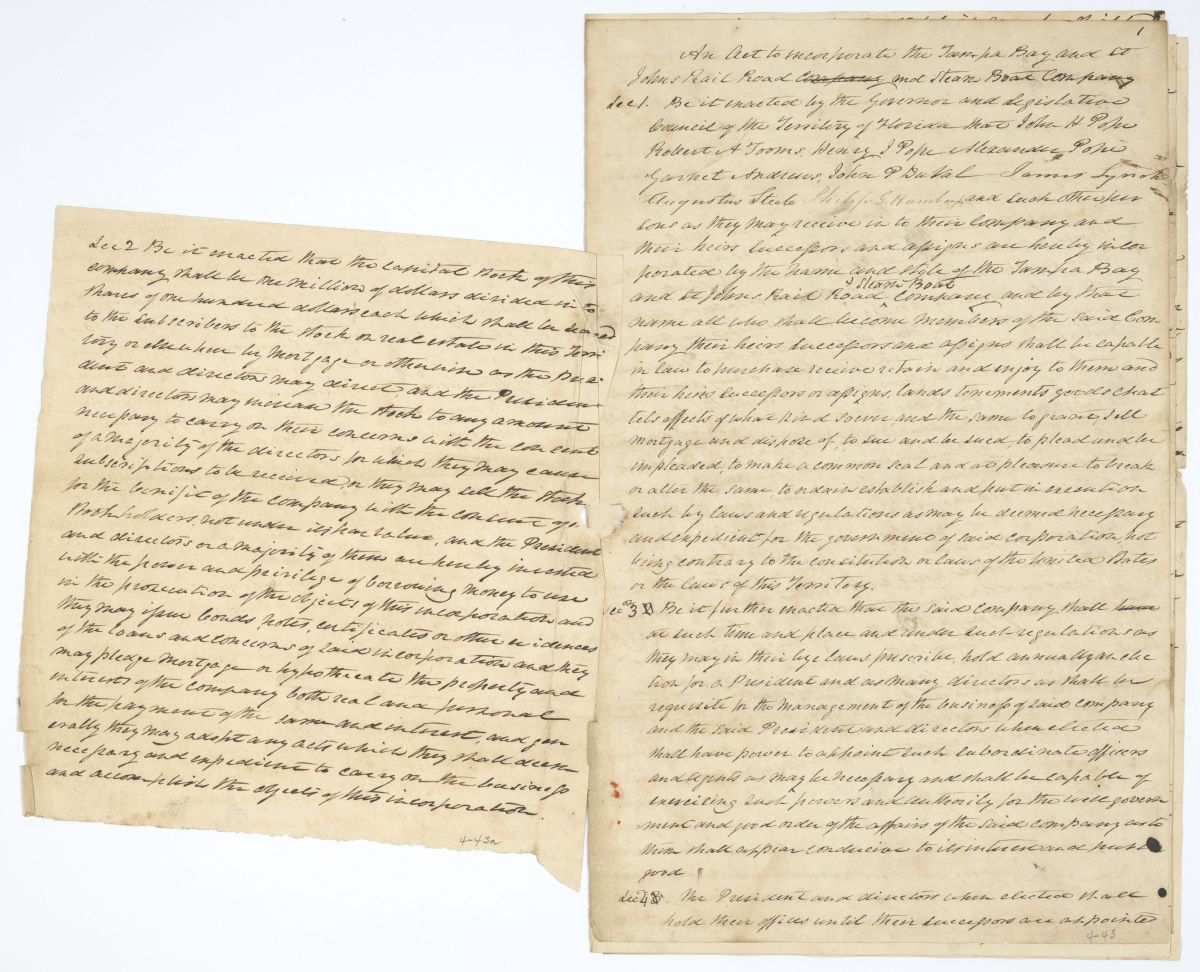 Sec 2 Be it enacted that the Capital Stock of this
company shall be one million of dollars divided in to
shares of one hundred dollars each which shall be
to the subscribers to the stock on real estate in this Terri
tory or elsewhere by Mortgage or otherwise as the Pres-
dent and directors may direct, and the President
and directors may increase the stock to any amount
necessary to carry on their concerns with the concent
of a majority of the directors for which they may cause
subscriptions to be received, or they may sell the stock
for the benifit of the company with the consent of
stock holders, not under its par value, and the President
and directors or a majority of them are hereby invested
with the power and privilege of borrowing money to use
in the prosecution of the objects of this incorporation and
they may issue bonds, notes, certificates or other evidences
of the loans and concerns of said incorporation and they
may pledge mortgage or hypothecate the property and
interests of the company both real and personal
for the payment of the same and interest, and gen
erally they may adopt any acts which they shall deem
necessary and expedient to carry on the business
and accomplish the objects of this incorporation.
4-43a
1
An Act to incorporate the Tampa Bay and St
Johns Rail Road Company and Steam Boat Company
Sec 1. Be it enacted by the Governor and Legislative
Council of the Territory of Florida that John H Pope
Robert A Tooms, Henry J Pope Alexander Pope
Garnet Andrews, John P DuVal James Lynch
Augustus Steele and such other per
sons as they may receive in to their Company and
their heirs successors and assigns are hereby incor
porated by the name and style of the Tampa Bay
and St Johns Rail Road & Steam Boat Company, and by that
name all who shall become Members of the said Com-
pany their heirs successors and assigns shall be capable
in law to purchase receive retain and enjoy to them and
their heirs successors or assigns, lands tenements goods chat
tels effects of what kind soever, and the same to grant, sell
mortgage and dispose of, to sue and be sued, to plead and be
impleaded, to make a common seal and at pleasure to break
or alter the same, to ordain establish and put in execution
such by laws and regulations as may be deemed necessary
and expedient for the government of said corporation, not
being contrary to the constitution or laws of the United States
or the laws of this Territory.
Sec 3 Be it further enacted that the said company shall have
at such time and place and under such regulations as
they may in their bye laws prescribe, hold annually an elec
tion for a President and as many directors as shall be
requisite for the management of the business of said company
and the said President and directors when elected
shall have power to appoint such subordinate officers
and agents as may be necessary and shall be capable of
exercising such powers and authority for the well govern
ment and good order of the affairs of the said company as to
them shall appear conducive to its interest and
good.
Sec 4. The President and directors when elected shall
hold their offices until their successors are appointed
4-43